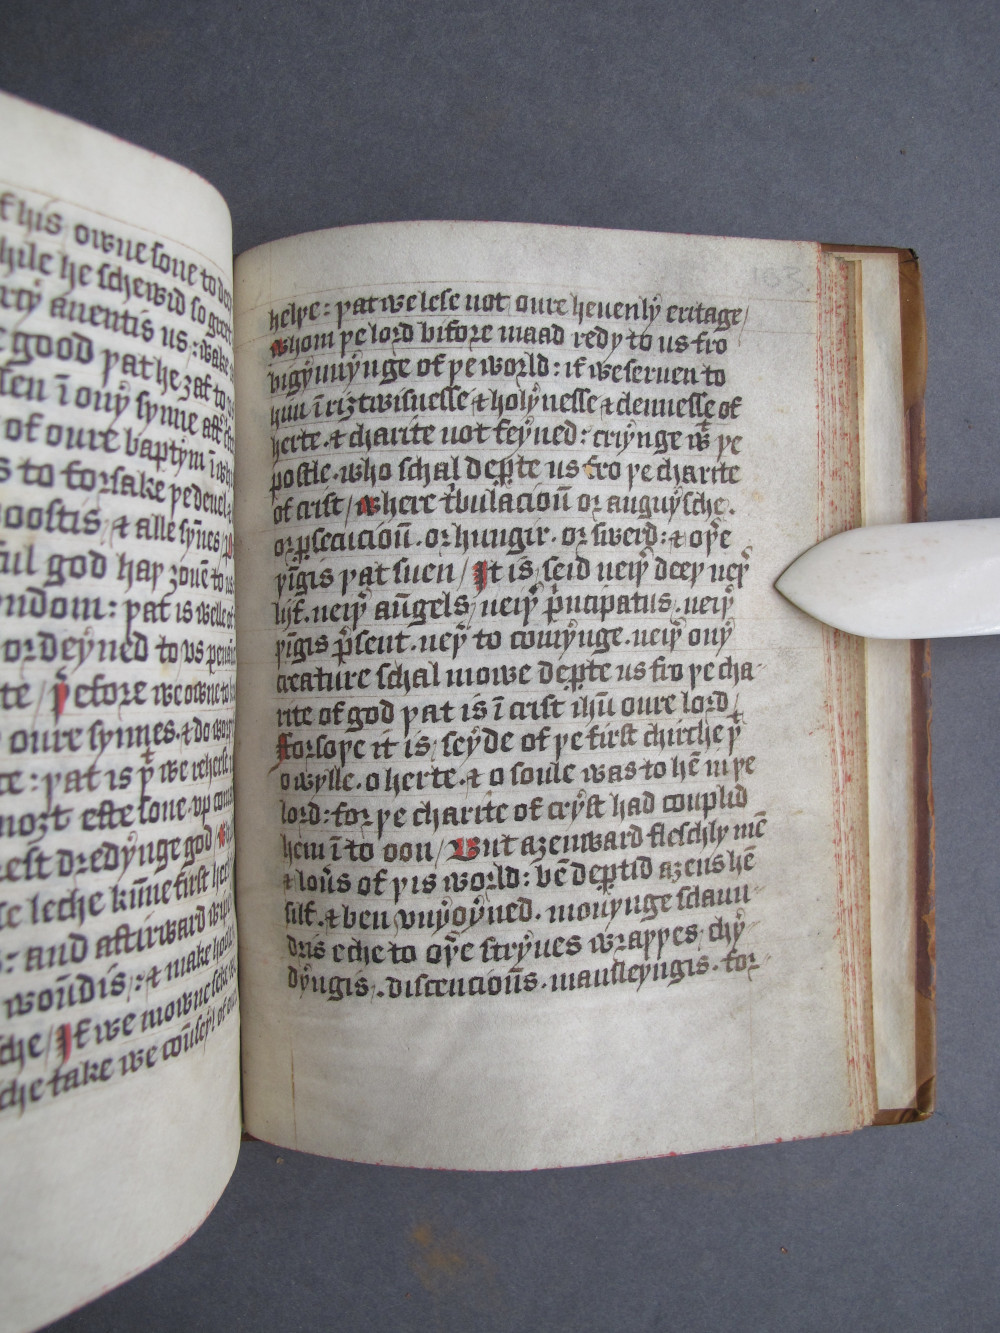 f his owne sone to
hile he schewid so gret
rcy auentis us : wake
e good þat he ȝaf to us
len ī ony synne aftir
of oure baptym ī
s to forsake þe deuel ⁊
poostis ⁊ alle syn̄es /
ful god haþ ȝouē to us
yndom : þat is welle of
ordeyned to us
te / þefore we owne to
oure synnes . ⁊ do
te : þat is þͭ we reherse
noȝt efte sone . vp
est dredynge god
se leche kūne first
s : and aftirward
woūdis : ⁊ make
che / If we mowne
che take we coūseyl of
163
helpe : þat we lese not oure heuenly eritage /
Whom þe lord bifore maad redy to us fro
bigynnynge of þe world : if we seruen to
him ī riȝtwisnesse ⁊ holynesse ⁊ clennesse of
herte . ⁊ charite not feyned : criynge wͭ þe
postle . who schal dep̱te us fro þe charite
of crist / Where t'bulacioun̄ or anguysche .
or p̱secucioun̄ . or hungir . or swerd : ⁊ oþe'
þīgis þat suen / It is seid neiþ' deeþ neþ'
lijf . neiþ' aūgels / neiþ' p'ncipatus . neiþ'
þīgis p'sent . neþ' to comynge . neiþ' ony
creature schal mowe dep̱te us fro þe cha-
rite of god þat is ī crist ihū oure lord /
Forsoþe it is seyde of þe first chirche þͭ
o wylle . o herte . ⁊ o soule was to hē in þe
lord : for þe charite of cryst had couplid
hem ī to oon / But aȝenward fleschly mē
⁊ loūs of þis world : bē dep̱tid aȝens hē
silf . ⁊ ben vnyoyned . mouynge sclaun-
dris eche to oþe' stryues wraþþes / chy-
dyngis . discencioūs . mansleyngis . for-